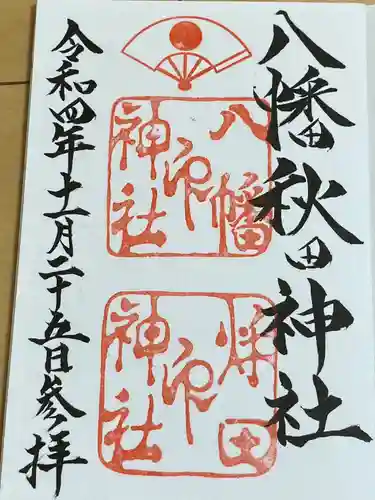 八幡秋田神社
八幡
神社印
秋田
神社印
令和四年十一月二十五日参拝